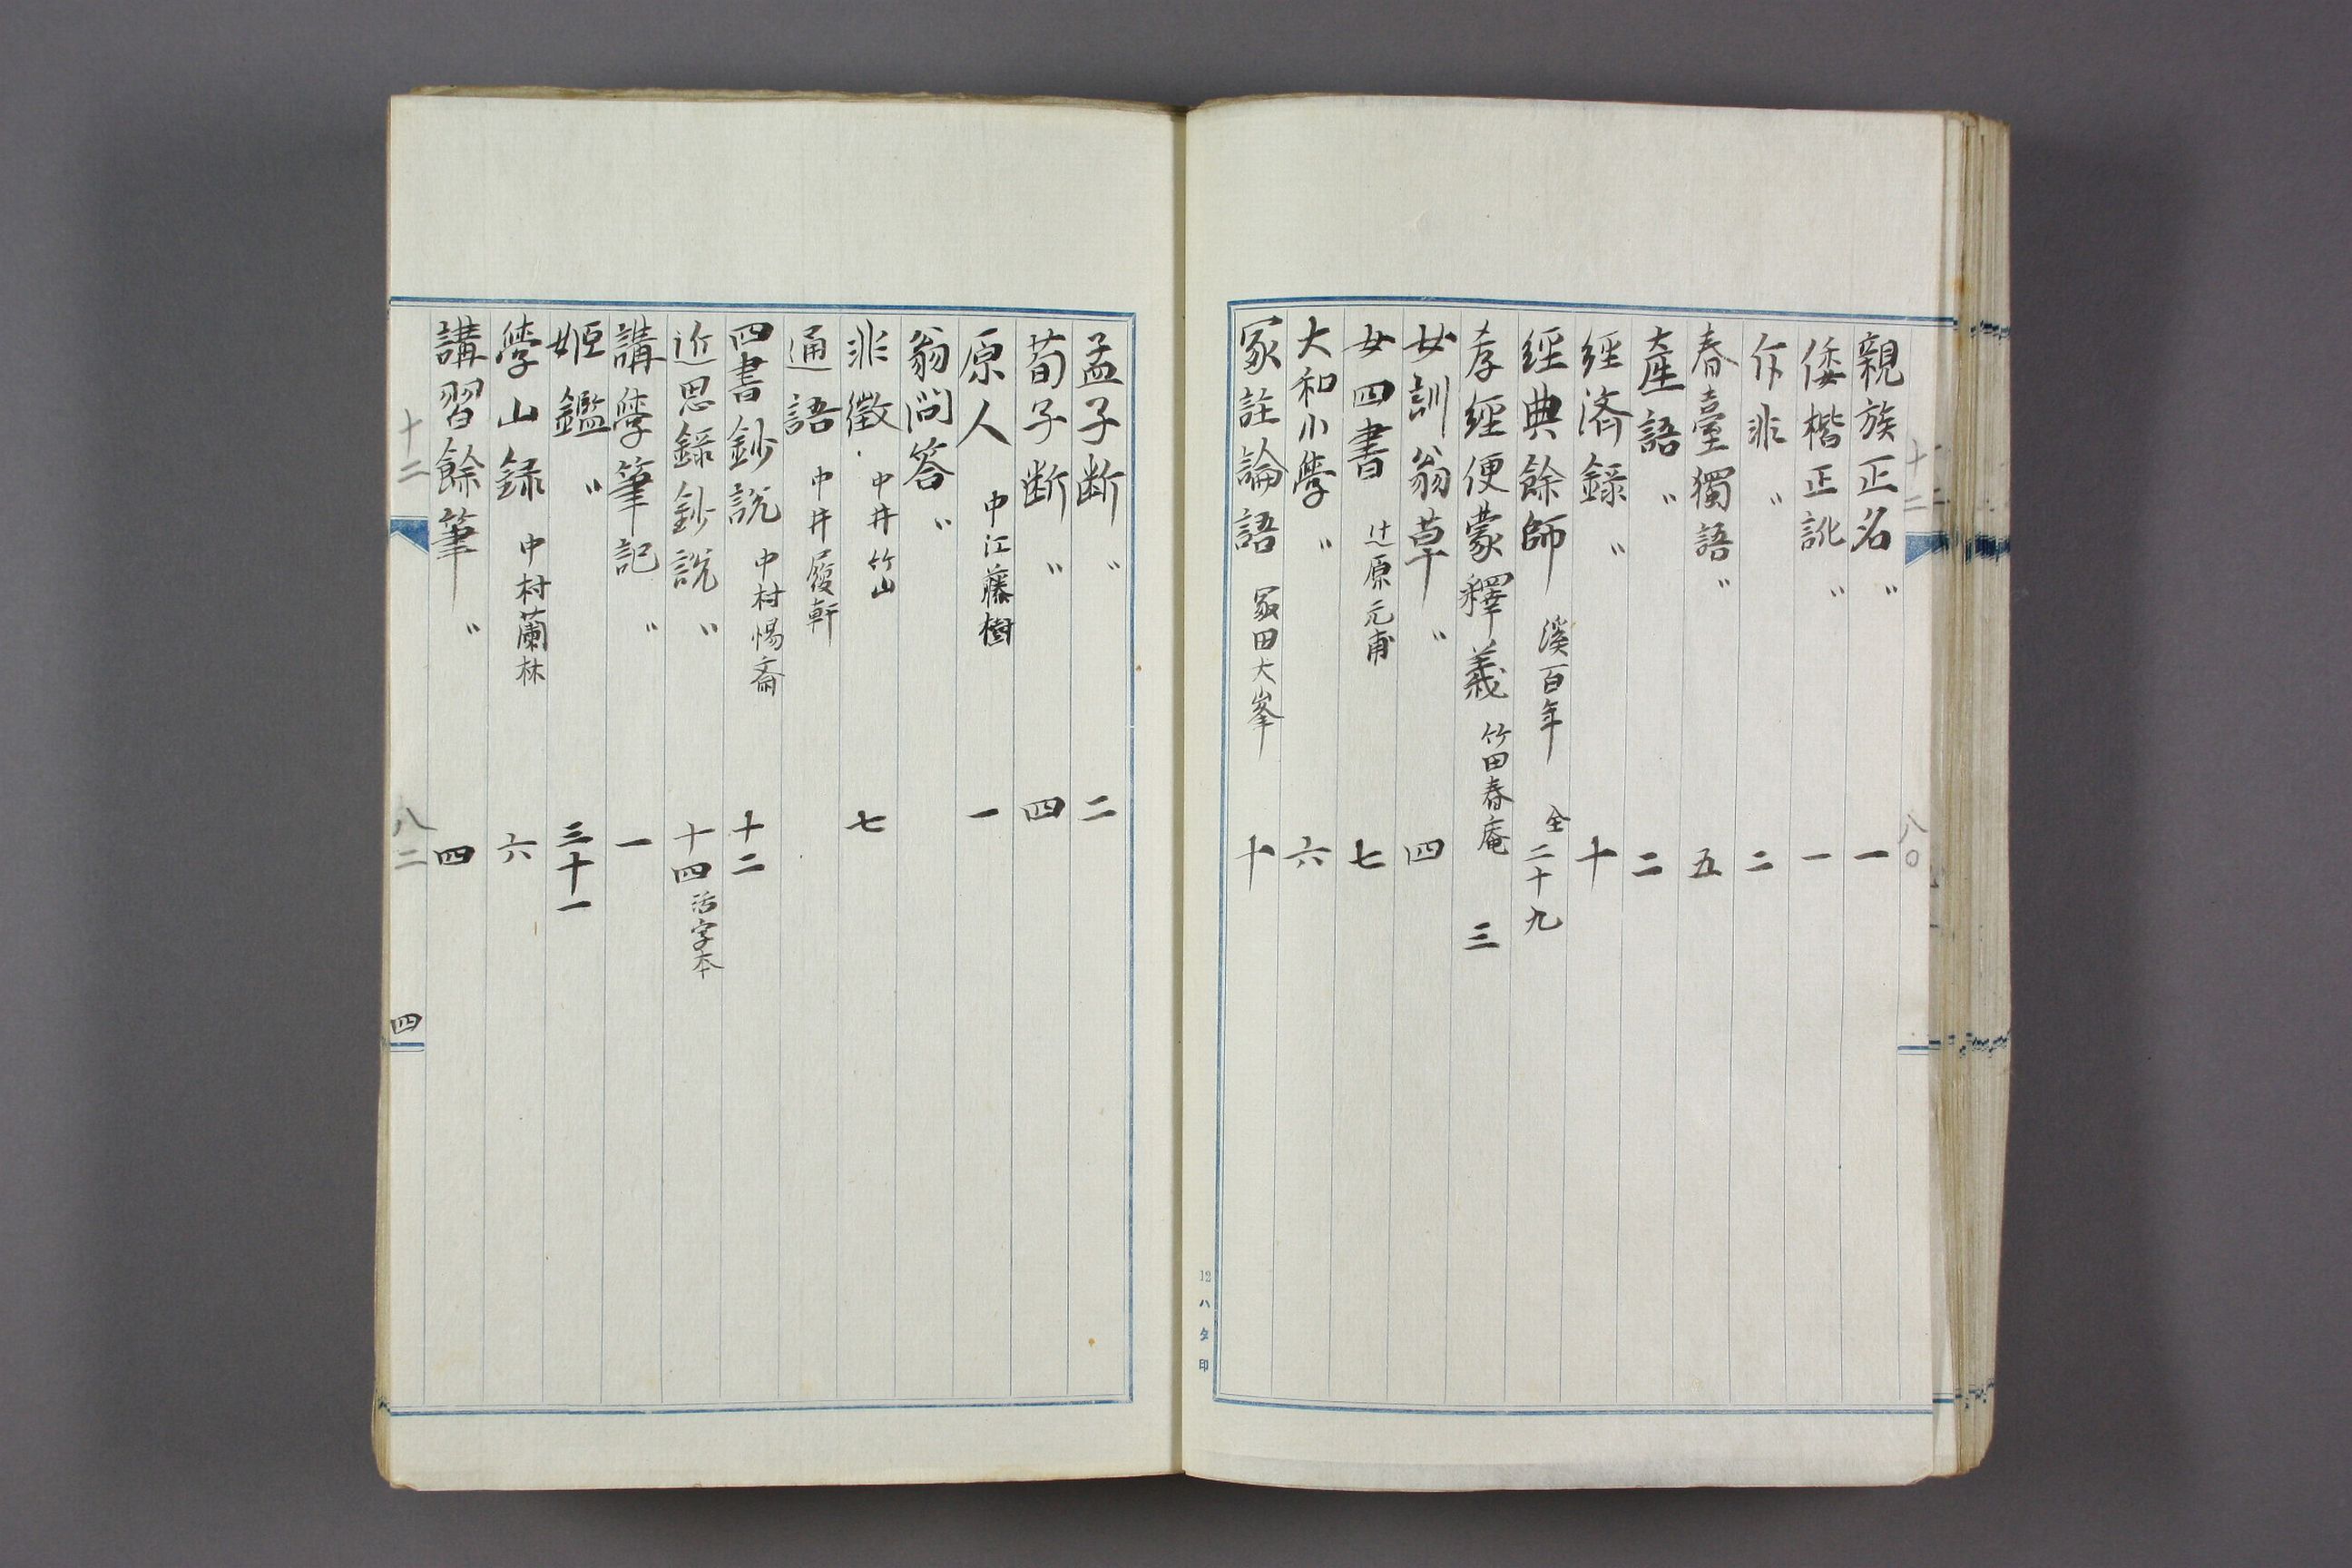 親族正名 〃 一
倭楷正訛 〃 一
斥非 〃 二
春臺獨語 〃 五
產語 〃 二
經濟錄 〃 十
經典餘師 溪百年 全二十九
孝經便蒙釋義 竹田春庵 三
女訓翁草 〃 四
女四書 辻原元甫 七
大和小學 〃 六
冢註論語 冢田大峯 十
12 ハタ印
孟子断 〃 二
荀子断 〃 四
原人 中江藤樹 一
翁問答 〃
非徴 中井竹山 七
通語 中井履軒
四書鈔説 中村惕斎 十二
近思録鈔説 〃 十四 活字本
講學筆記 〃 一
姫鑑 〃 三十一
學山録 中村蘭林 六
講習餘筆 〃 四
十二 八二 四